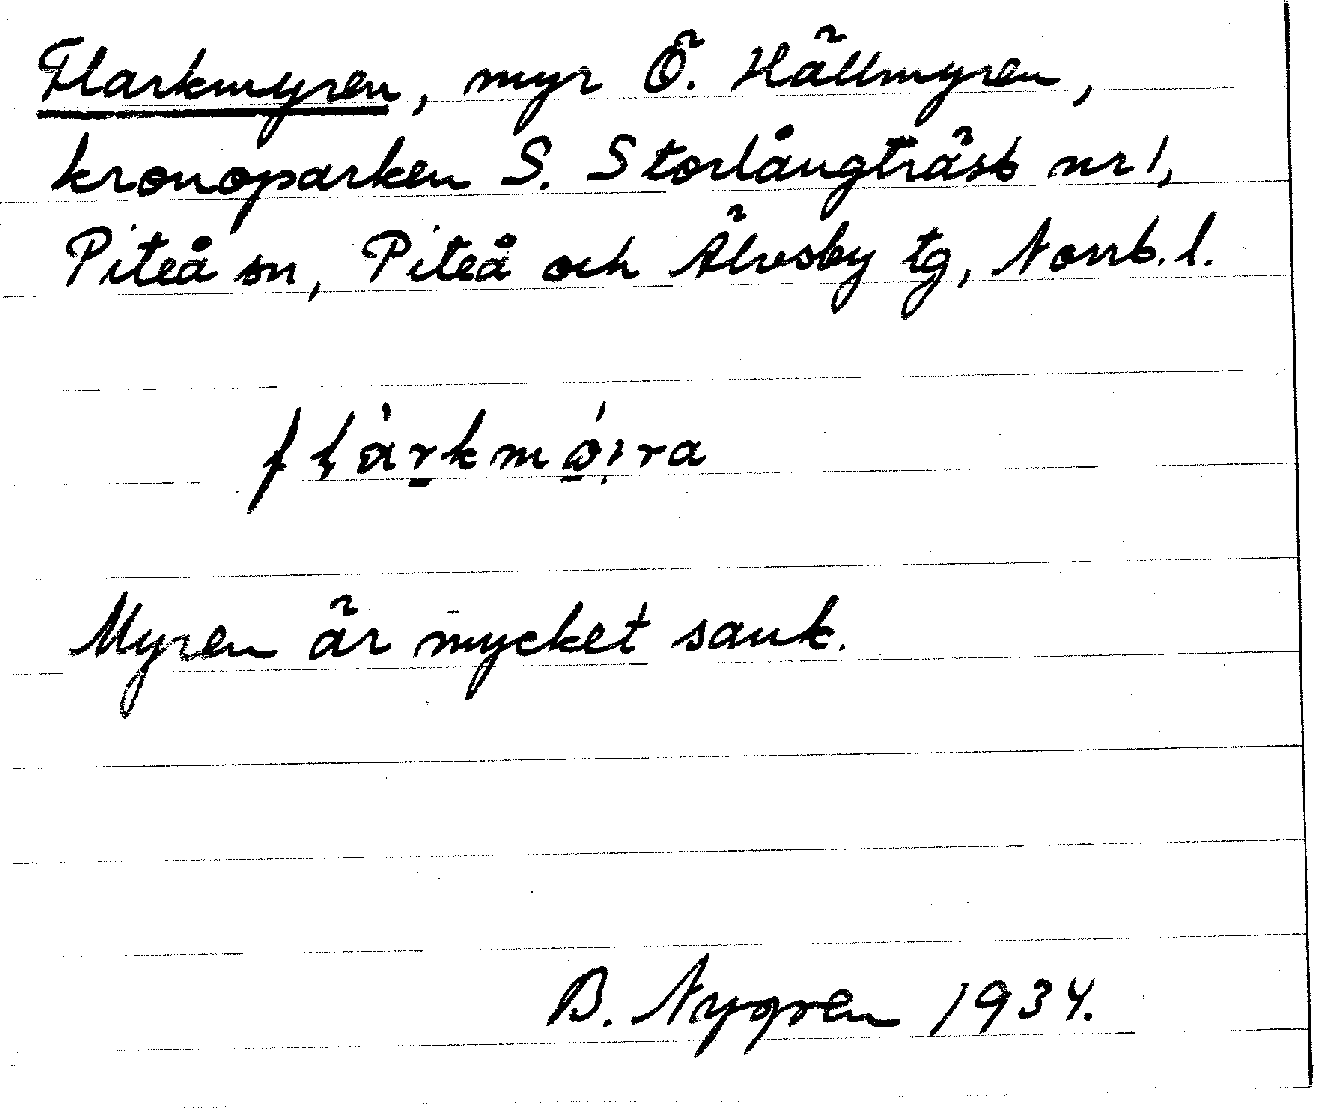 Flarkmyren, myr Ö. Hällmyren,
kronoparken S. Storlångträsk nr 1,
Piteå sn, Piteå och Älvsby tg, Norrb. l.
flàrkmǿira
Myren är mycket sank.
B. Nygren 1934.